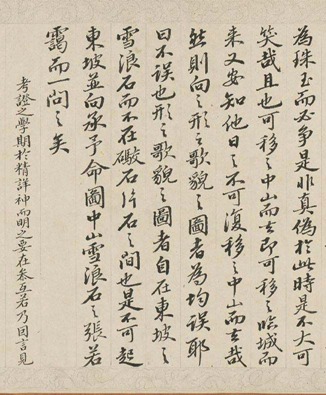 為珠玉而必爭是非真偽於此時是不大可
笑哉且也可移之中山而去即可移之臨城而
來又安知他日之不可復移之中山而去哉
然則向之形之歌貌之圖者為均誤耶
曰不誤也形之歌貌之圖者自在東坡之
雪浪石而不在礮石片石之間也是不可起
東坡並向承予命圖中山雪浪石之張若
靄而一問之矣
考證之學期於精詳神而明之要在參互若乃因言見